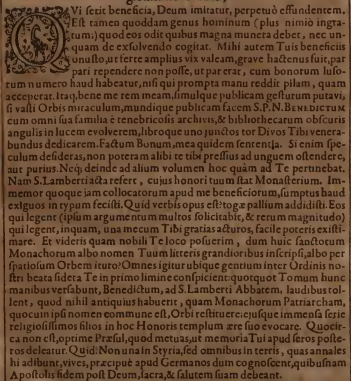 QVi serit beneficia, Deum imitatur, perpetuò effundentem.
Est tamen quoddam genus hominum (plus nimiò ingra-
tum) quod eos odit quibus magna munera debet, nec un-
quam de exsolvendo cogitat. Mihi autem Tuis beneficiis
onusto, ut ferre amplius vix valeam, grave hactenus fuit, par
pari rependere non posse, ut par erat, cum bonorum luso-
rum numero haud habeatur, nisi qui prompta manu reddit pilam, quam
acceperat. Itaq; bene me rem meam, simulque publicam gesturum putavi,
si vasti Orbis miraculum, mundique publicam facem S.P.N. BENEDICTUM
cum omni sua familia è tenebricosis archivis, & bibliothecarum obscuris
angulis in lucem evolverem, libroque uno junctos tor Divos Tibi venera-
bundus dedicarem. Factum Bonum, mea quidem sententia. Si enim spe-
culum desideras, non poteram alibi te tibi pressius ad unguem ostendere,
aut purius. Neq; deinde ad alium volumen hoc quàm ad Te pertinebat.
Nam S. Lamberti acta refert, cujus honori tuum stat Monasterium. Im-
memor quoque jam collocatorum apud me beneficiorum, sumptus haud
exiguos in typum fecisti. Quid verbis opus est? togæ pallium addidisti. Eos
qui legent (ipsum argumentum multos solicitabit, & rerum magnitudo)
qui legent, inquam, una mecum Tibi gratias acturos, facile poteris existi-
mare. Et videris quam nobili Te loco posuerim, dum huic sanctorum
Monachorum albo nomen Tuum litteris grandioribus inscripsi, albo per
spatiosum Orbem ituro? Omnes igitur ubique gentium inter Ordinis no-
stri beata sidera Te in primo limine conspicient: quotquot Tomum hunc
manibus versabunt, Benedictum, ad S. Lamberti Abbatem, laudibus tol-
lent, quod nihil antiquius habuerit, quam Monachorum Patriarcham,
quocum ipsi nomen commune est, Orbi restituere, ejusque immensa serie
religiosissimos filios in hoc Honoris templum ære suo evocare. Quocir-
ca non est, optime Præsul, quod metuas, ut memoria Tui apud seros poste-
ros deleatur. Quid? Non una in Styria, sed omnibus in terris, quas annales
hi adibunt, vives, præcipuè apud Germanos dum cognoscent, quibusnam
Apostolis fidem post Deum, sacra, & salutem suam debeant.